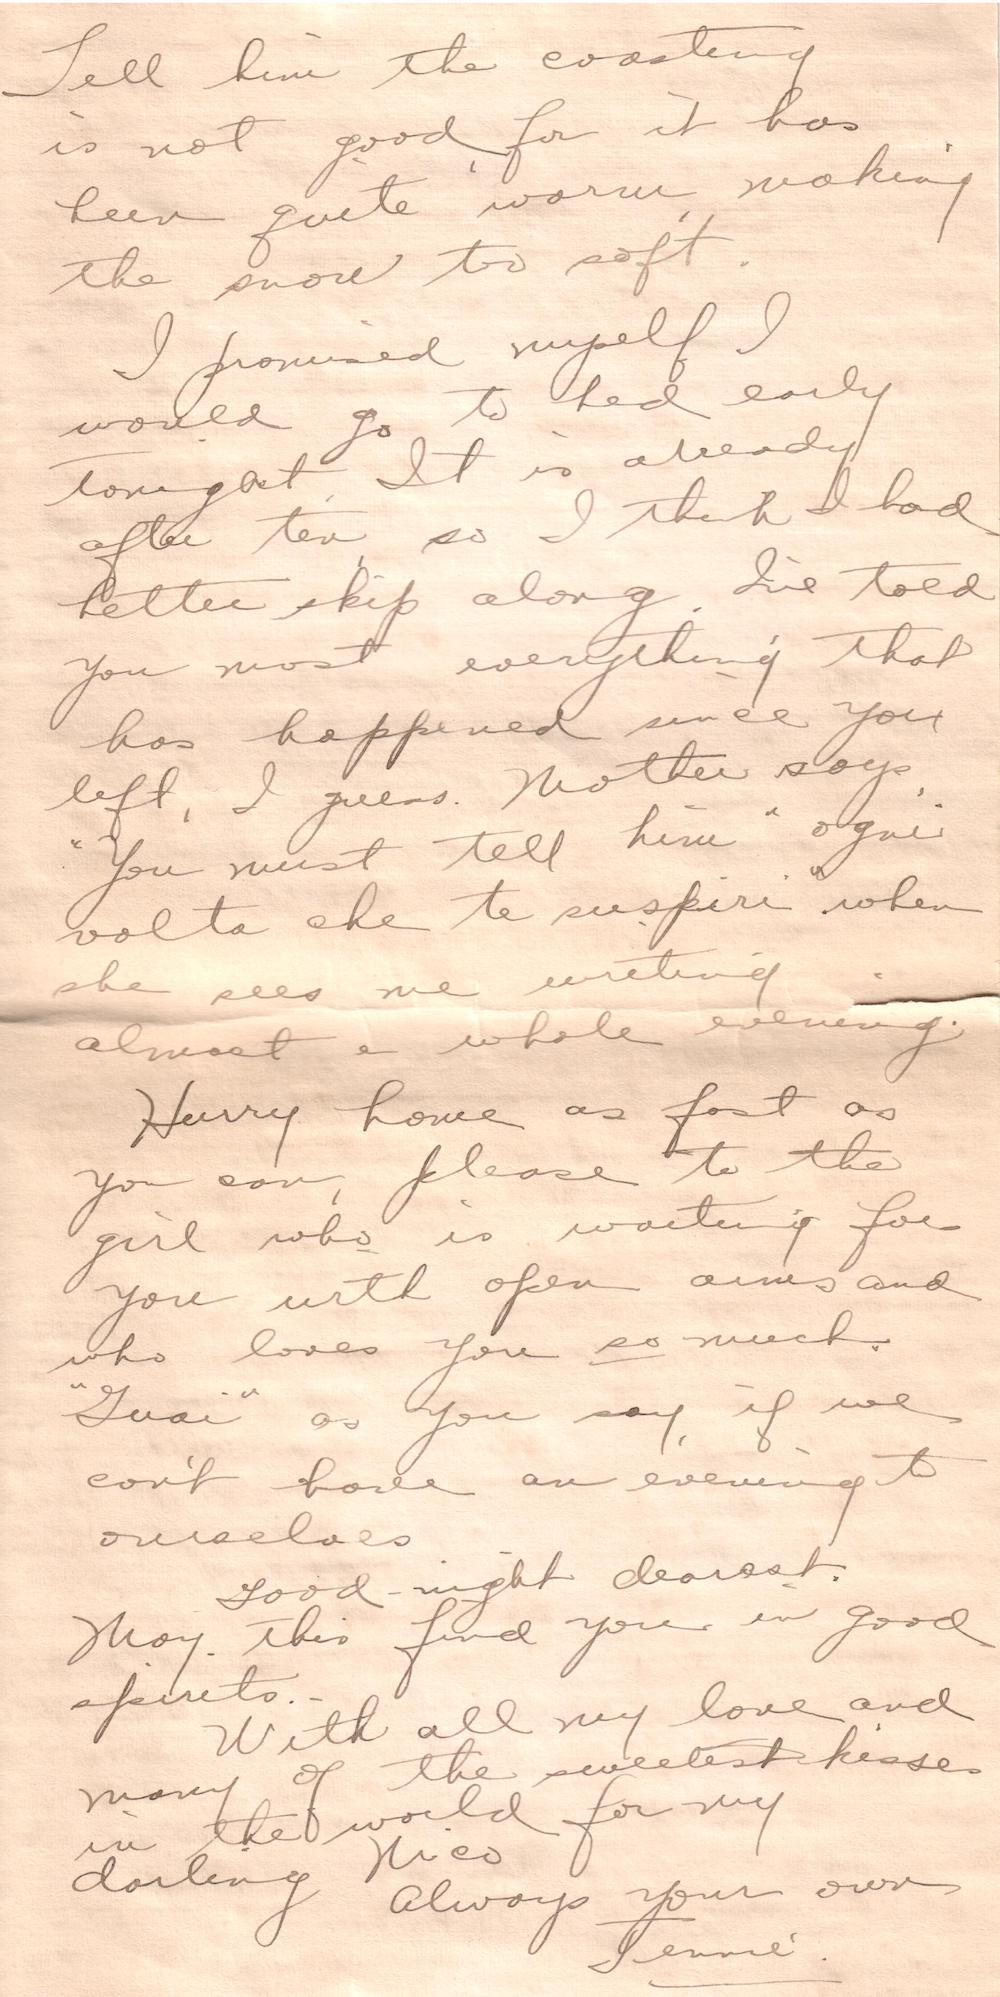 Tell him the coasting
is not good, for it has
been quite warm, making
the snow too soft.
I promised myself I
would go to bed early
tonight. It is already
after ten, so I think I had
better skip along. I've told
you most everything that
has happened since you
left, I guess. Mother says,
"You must tell him "ogni
volta che te suspiri" when
she sees me writing
almost a whole evening.
Hurry home as fast as
you can, please to the
girl who is waiting for
you with open arms and
who loves you so much.
"Guai" as you say, if we
can't have an evening to
ourselves
Good-night dearest.
May this find you in good
spirits.-
With all my love and
many of the sweetest kisses
in the world for my
darling Nico
Always your own
Jennie.